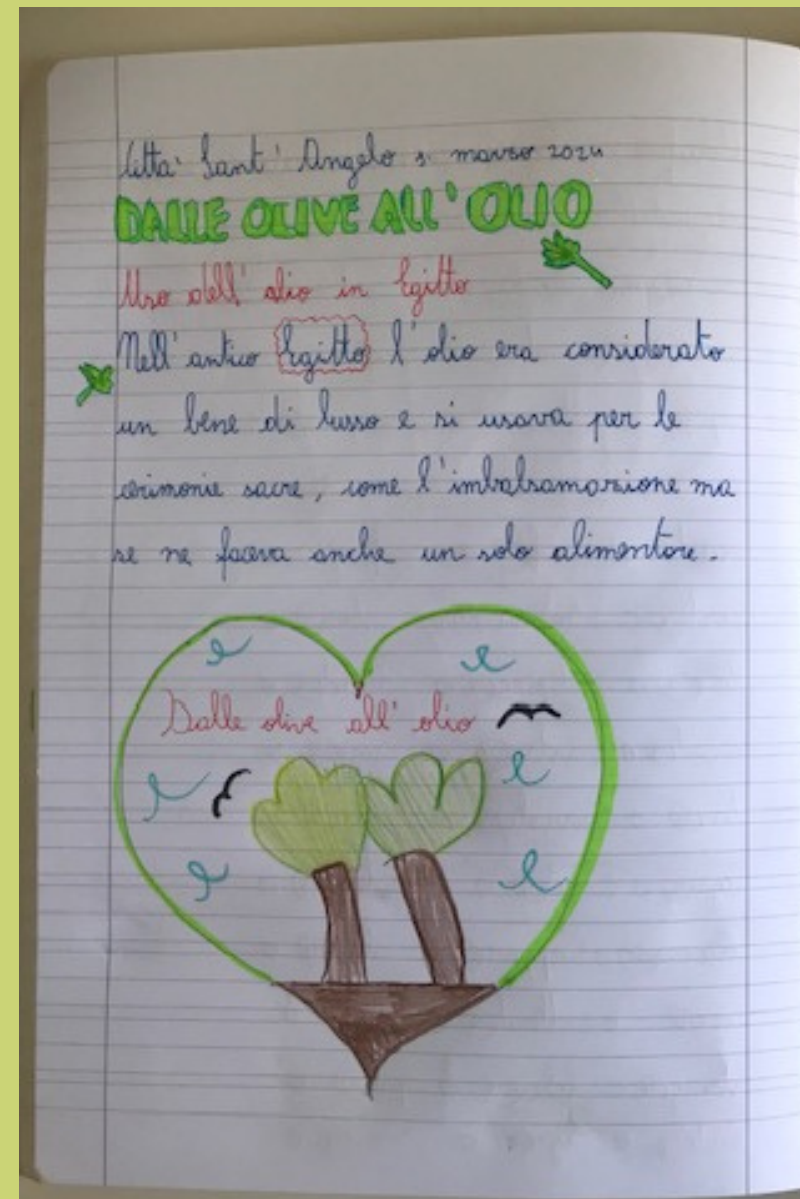 Città Sant' Angelo 5 marzo 2024
DALLE OLIVE ALL' OLIO
Uso dell' olio in Egitto
Nell' antico Egitto l' olio era considerato
un bene di lusso e si usava per le
cerimonie sacre, come l'imbalsamazione ma
se ne faceva anche un solo alimentare.
Dalle olive all' olio